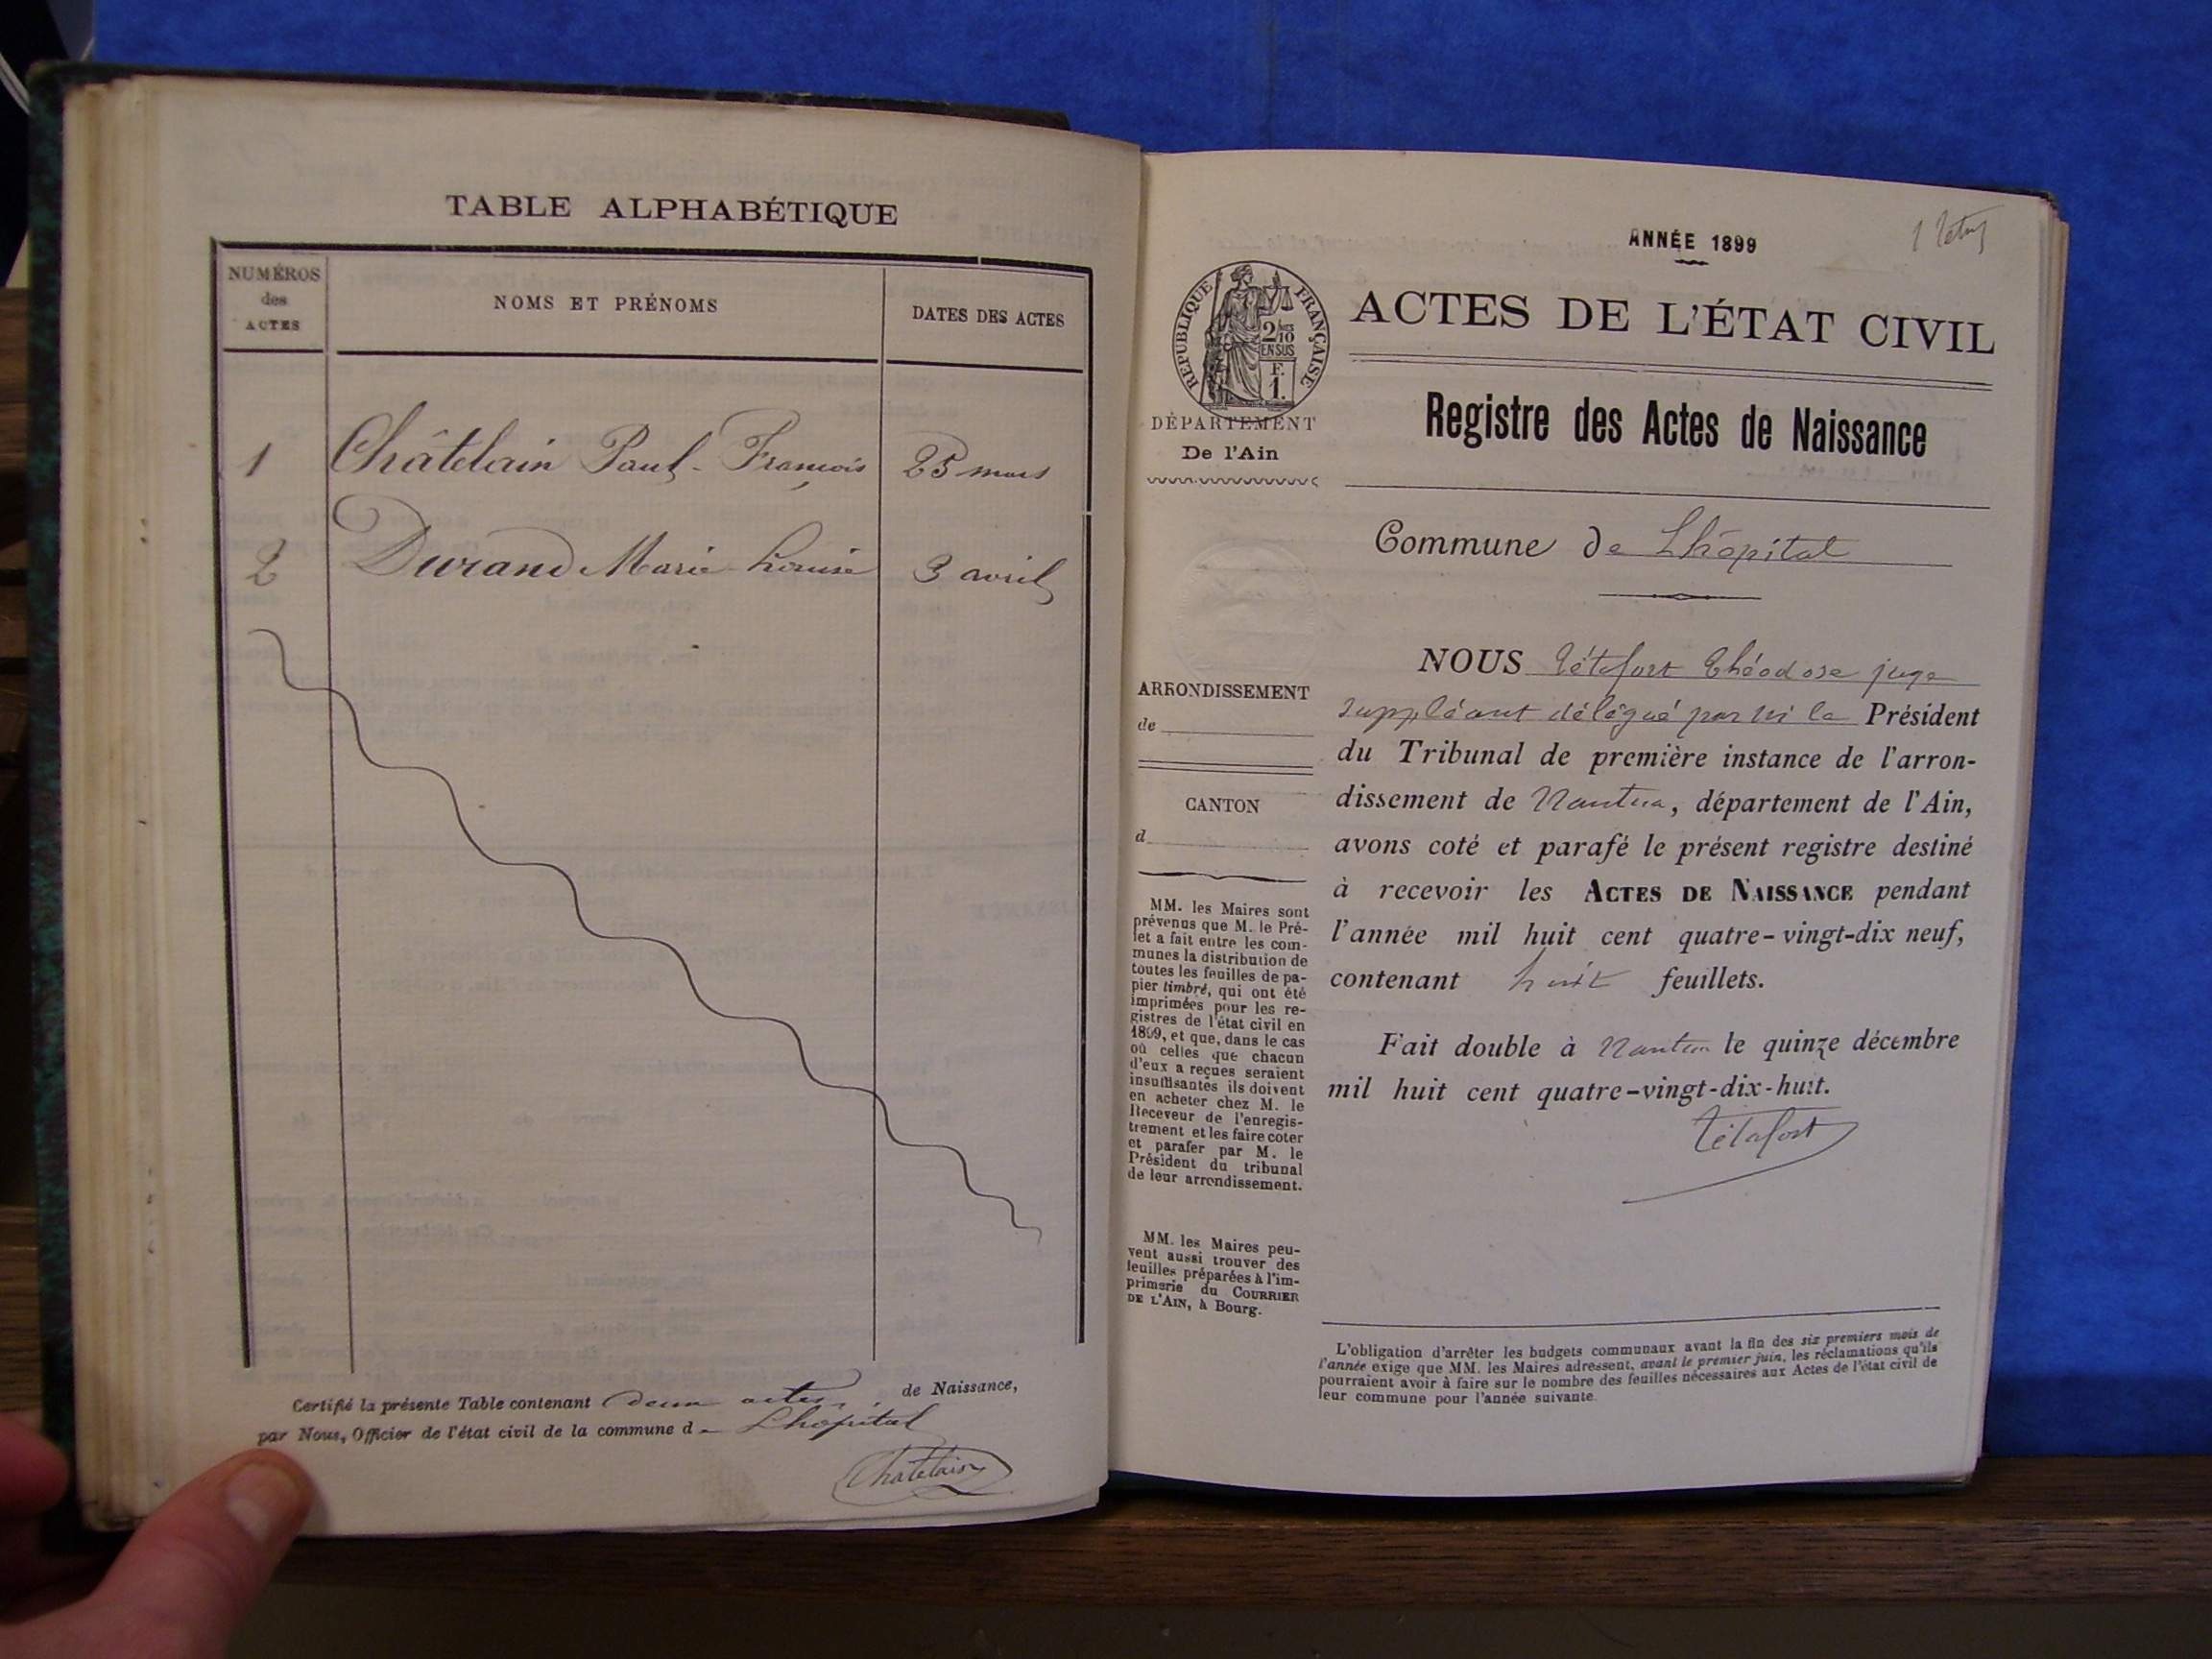 TABLE ALPHABÉTIQUE
NUMÉROS
des
ACTES
NOMS ET PRÉNOMS
DATES DES ACTES
1 Châtelain Paul-François 25 mars
2 Durand Marie Louise 3 avril
Certifié la présente Table contenant deux actes de Naissance,
par Nous, Officier de l'état civil de la commune de Lhôpital
Chatelain
ANNÉE 1899
RÉPUBLIQUE FRANÇAISE
2/10
EN SUS
F.
1.
ACTES DE L'ÉTAT CIVIL
DÉPARTEMENT
De l'Ain
Registre des Actes de Naissance
Commune de Lhôpital
ARRONDISSEMENT
de
CANTON
d
MM. les Maires sont
prévenus que M. le Pré-
fet a fait entre les com-
munes la distribution de
toutes les feuilles de pa-
pier timbré, qui ont été
imprimées pour les re-
gistres de l'état civil en
1899, et que, dans le cas
où celles que chacun
d'eux a reçues seraient
insuffisantes ils doivent
en acheter chez M. le
Receveur de l'enregis-
trement et les faire coter
et parafer par M. le
Président du tribunal
de leur arrondissement.
MM. les Maires peu-
vent aussi trouver des
feuilles préparées à l'im-
primerie du COURRIER
DE L'AIN, à Bourg.
NOUS Tétafort Théodose juge
suppléant délégué par M. le Président
du Tribunal de première instance de l'arron-
dissement de Nantua, département de l'Ain,
avons coté et parafé le présent registre destiné
à recevoir les ACTES DE NAISSANCE pendant
l'année mil huit cent quatre-vingt-dix neuf,
contenant huit feuillets.
Fait double à Nantua le quinze décembre
mil huit cent quatre-vingt-dix-huit.
Tétafort
L'obligation d'arrêter les budgets communaux avant la fin des six premiers mois de
l'année exige que MM. les Maires adressent, avant le premier juin, les réclamations qu'ils
pourraient avoir à faire sur le nombre des feuilles nécessaires aux Actes de l'état civil de
leur commune pour l'année suivante.